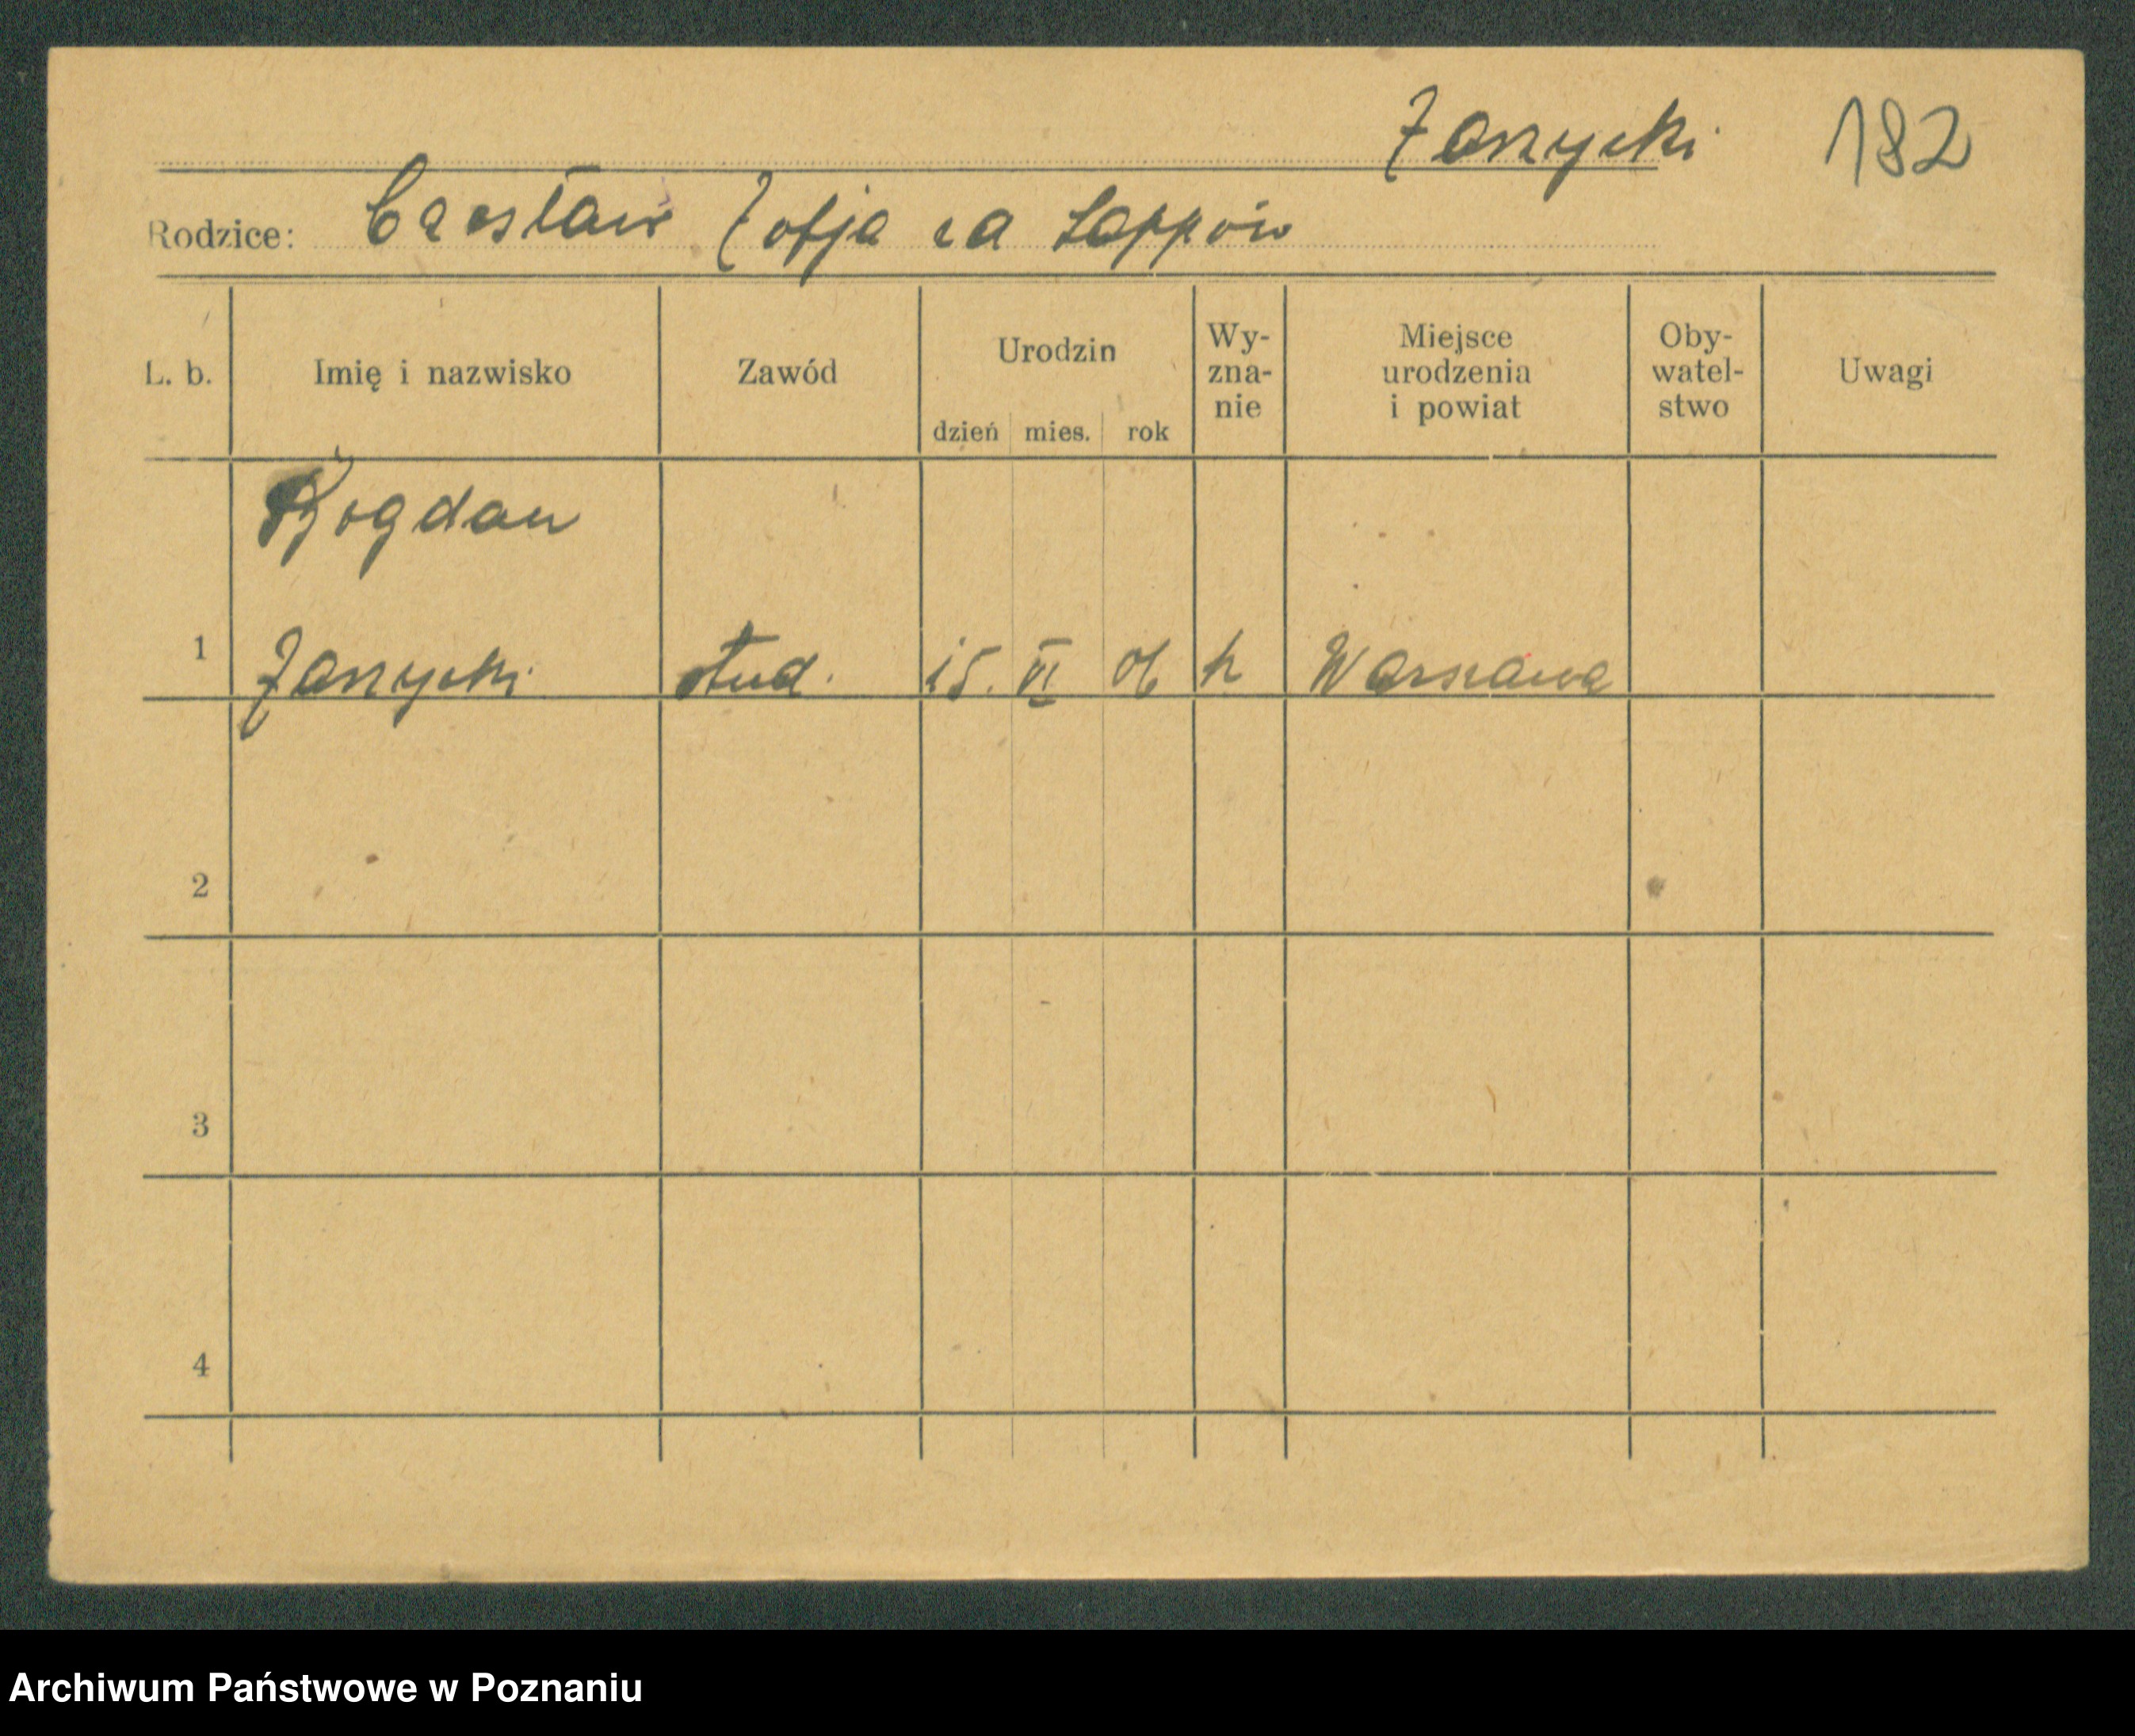 Zarzycki 182
Rodzice: Czesław Zofja
L. b. Imię i nazwisko Zawód Urodzin dzień mies. rok Wy-zna-nie Miejsce urodzenia i powiat Oby-watel-stwo Uwagi
Bogdan
1 Zarzycki stud. 15. VI 06 k Warszawa
2
3
4
Archiwum Państwowe w Poznaniu